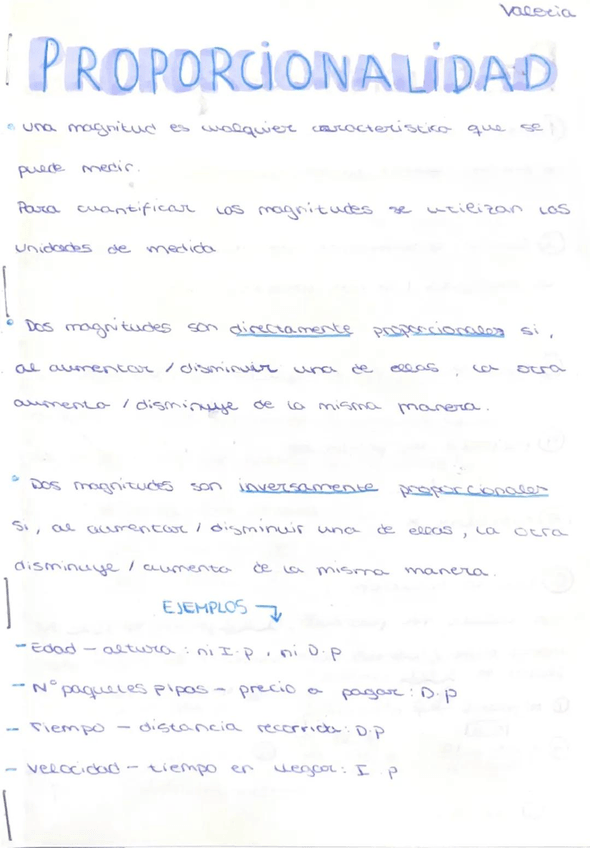 Valeria
PROPORCIONALIDAD
• una magnitud es cualquier característica que se
puede medir.
Para cuantificar las magnitudes se utilizan las
unidades de medida
• Dos magnitudes son directamente proporcionales si,
al aumentar / disminuir una de ellas, la otra
aumenta / disminuye de la misma manera.
• Dos magnitudes son inversamente proporcionales
si, al aumentar / disminuir una de ellas, la otra
disminuye / aumenta de la misma manera.
EJEMPLOS
- Edad - altura : ni I.p, ni D.p
- Nº paquetes pipas - precio a pagar: D.p
- Tiempo - distancia recorrida: D.p
- Velocidad - tiempo en llegar: I.p